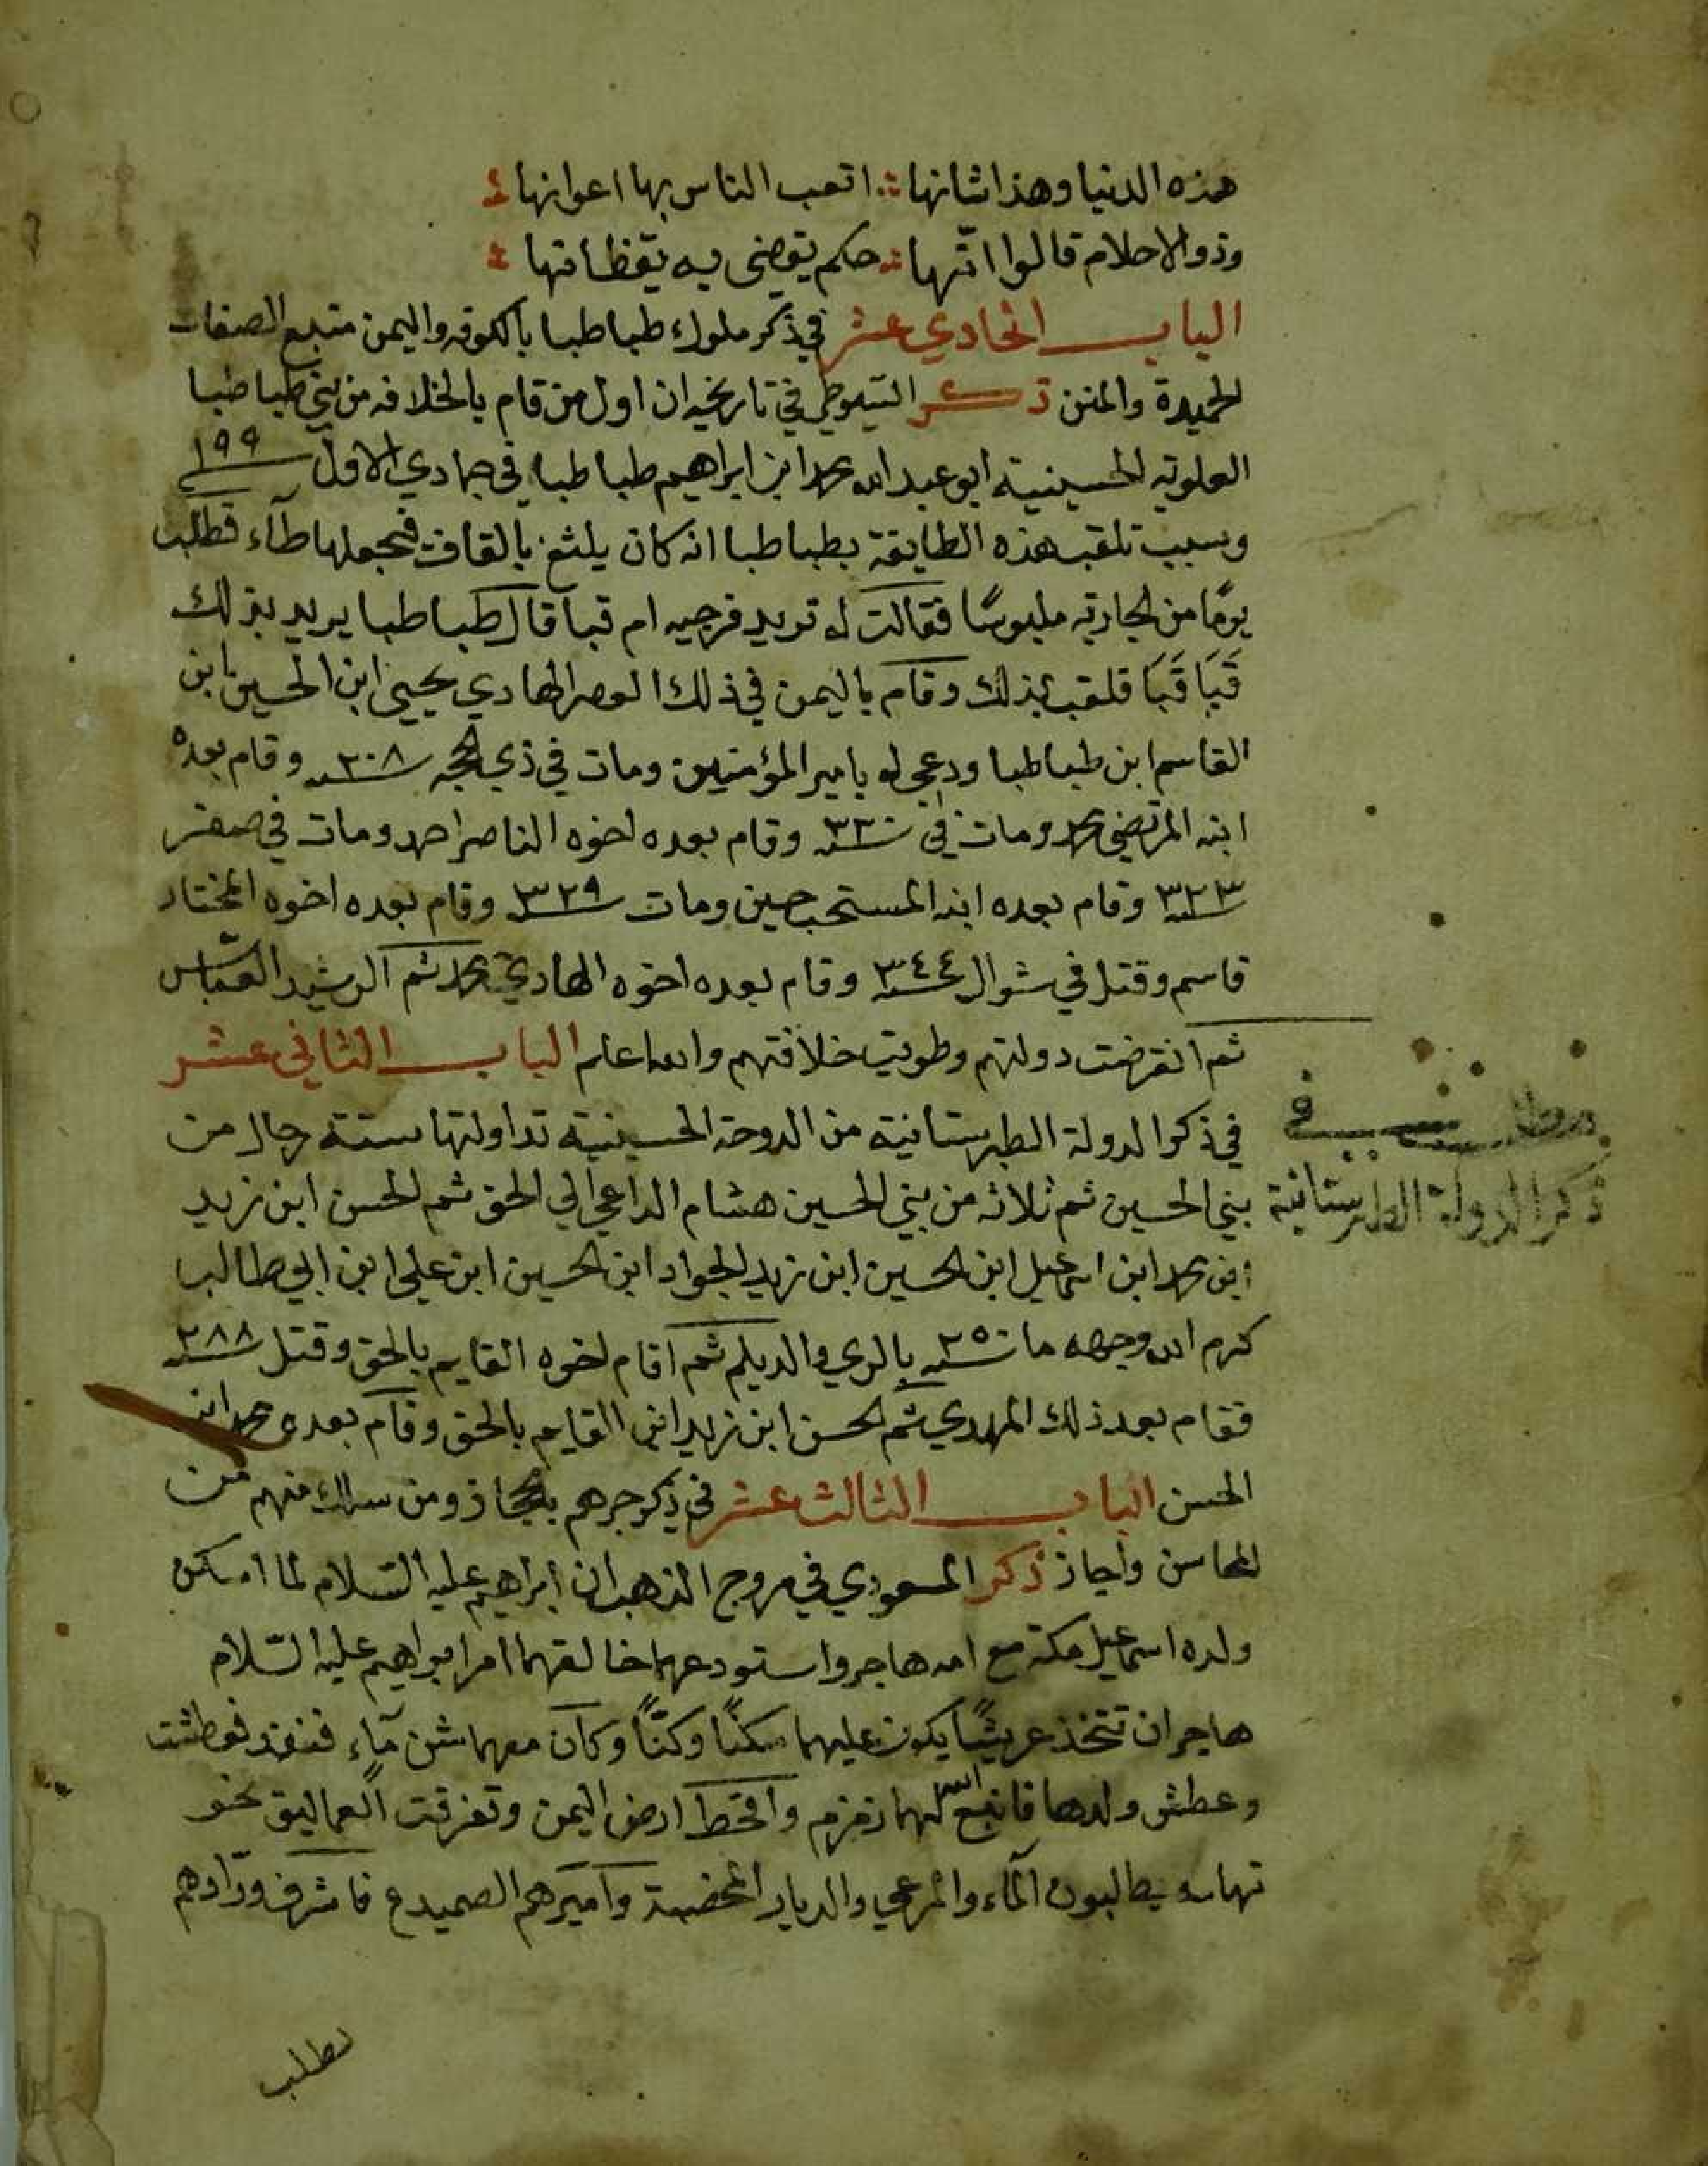 هذه الدنيا وهذا شانها ∴ اتعب الناس بها اعوانها
وذو الاحلام قالوا انّها ∴ حكم يقضى به يقظانها
الباب الحادي عشر في ذكر ملوك طباطبا بالكوفه واليمن منبع الصفات
الحميدة والمنن ذكر السيوطي في تاريخه ان اول من قام بالخلافه من بني طباطبا
العلويه الحسينية ابو عبد الله محمد ابن ابراهيم طباطبا في جمادي الاول ١٩٩
وسبب تلقب هذه الطايفة بطباطبا انه كان يلثغ بالقاف فيجعلها طآء فطلب
يومًا من الجاريه ملبوسًا فقالت له تريد فرجيه ام قبا قال طبا طبا يريد بذلك
قَبَا قَبَا فلقب بذلك وقام باليمن في ذلك العصر الهادي يحيى ابن الحسين ابن
القاسم ابن طباطبا ودعي له بامير المؤمنين ومات في ذي الحجه سنة ٢٠٨ وقام بعده
ابنه المرتضى محمد ومات في سنة ٣٢٠ وقام بعده اخوه الناصر احمد ومات في صفر
سنة ٣٢٣ وقام بعده ابنه المستحب حسين ومات سنة ٣٢٩ وقام بعده اخوه المختار
قاسم وقتل في شوال سنة ٣٤٤ وقام بعده اخوه الهادي محمد ثم الرشيد العبّاس
ثم انقرضت دولتهم وطويت خلافتهم والله اعلم الباب الثاني عشر
في ذكر الدولة الطبرستانية من الدوحة الحسينية تداولتها ستة رجال من
بني الحسين ثم ثلاثه من بني الحسين هشام الداعي الي الحق ثم الحسن ابن زيد
ابن محمد ابن اسمعيل ابن الحسين ابن زيد الجواد ابن الحسين ابن علي ابن ابي طالب
كرم الله وجهه مات سنة ٢٥٠ بالري والديلم ثم اقام اخوه القايم بالحق وقتل سنة ٢٨٨
فقام بعد ذلك المهدي ثم الحسن ابن زيد ابن القايم بالحق وقام بعده محمد ابن
الحسن الباب الثالث عشر في ذكر جرهم بالحجاز ومن سلك منهم من
المحاسن واجاز ذكر المسعودي في مروج الذهب ان ابراهيم عليه السلام لما اسكن
ولده اسمعيل مكة مع امه هاجر واستودعهما خالقهما امر ابراهيم عليه السّلام
هاجر ان تتخذ عريشًا يكون عليهما سكنًا وكنًّا وكان معهما شن مآء فنفد فعطشت
وعطش ولدها فانبع الله لهما زمزم واقحط ارض اليمن وتفرقت العماليق نحو
تهامه يطلبون المآء والمرعي والديار المخصبة واميرهم الصميدع فاشرف روّادهم
مطلب في
ذكر الدولة الطبرستانية
لطلب